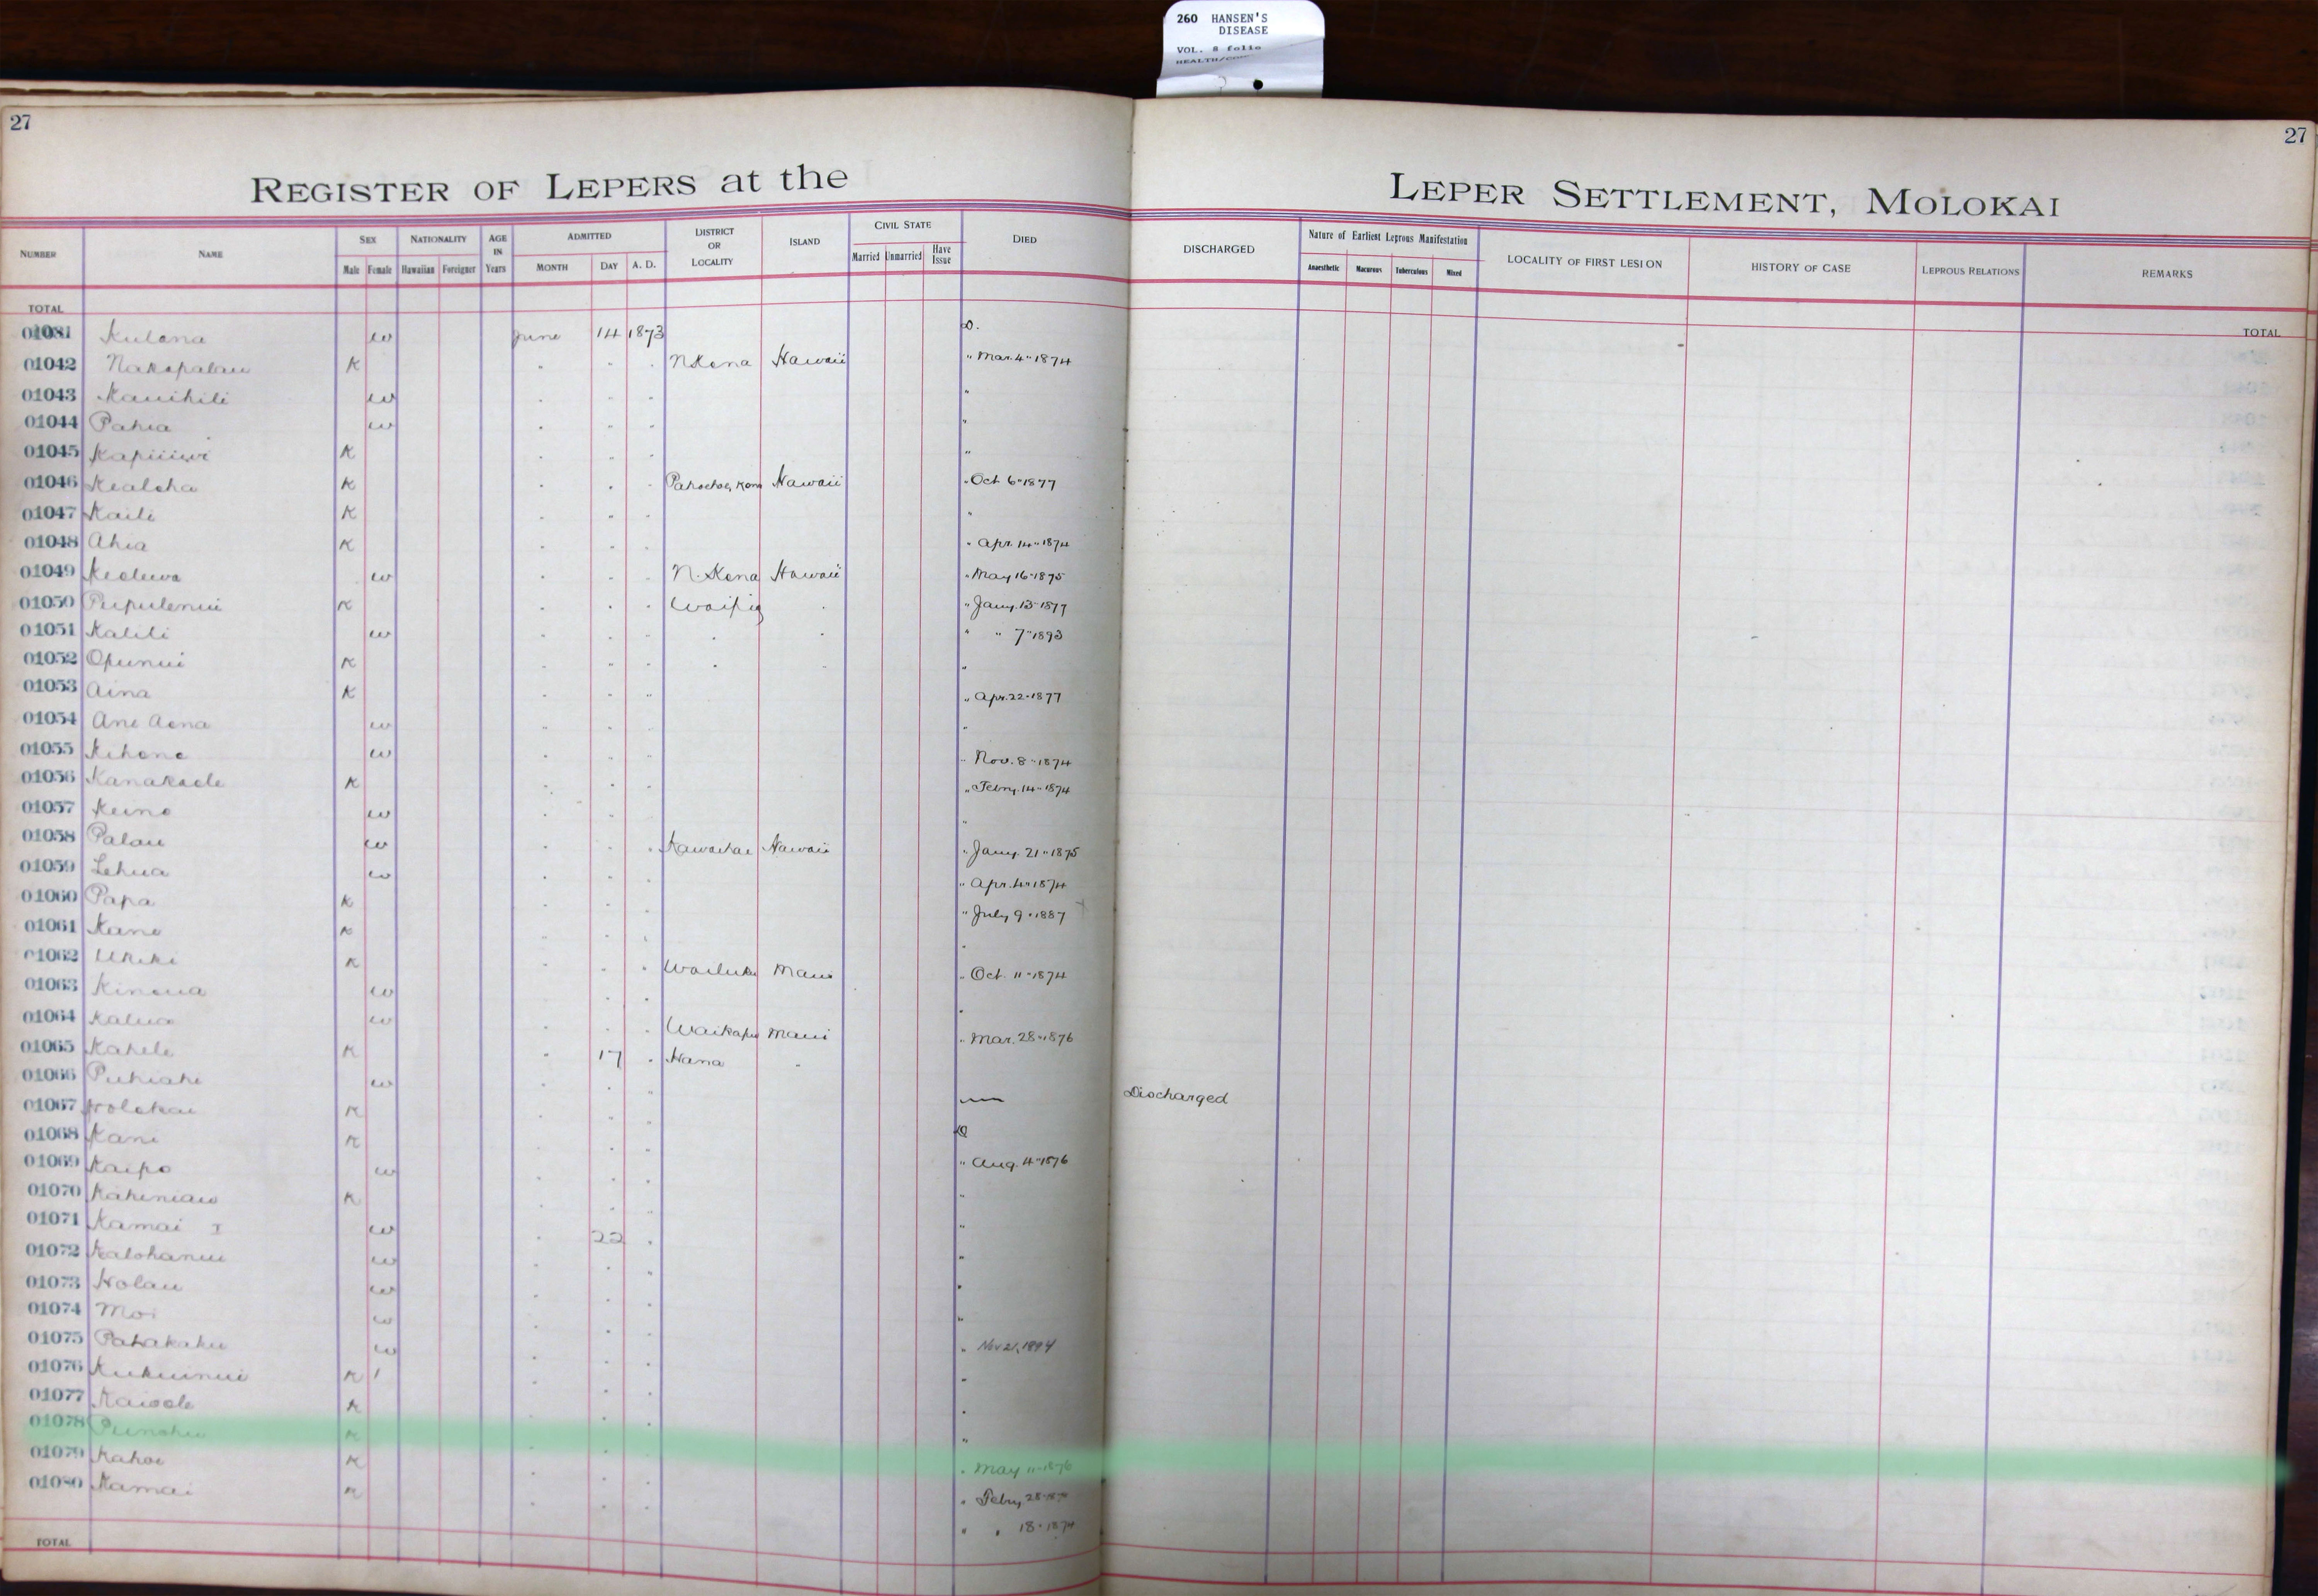 260 HANSEN'S
DISEASE
VOL. 8 folio
27
27
REGISTER OF LEPERS at the
LEPER SETTLEMENT, MOLOKAI
NUMBER NAME SEX Male Female NATIONALITY Hawaiian Foreigner AGE IN Years ADMITTED MONTH DAY A. D. DISTRICT OR LOCALITY ISLAND CIVIL STATE Married Unmarried Have Issue DIED DISCHARGED Nature of Earliest Leprous Manifestation Anaesthetic Macurous Tuberculous Mixed LOCALITY OF FIRST LESION HISTORY OF CASE LEPROUS RELATIONS REMARKS
TOTAL TOTAL
Kulana w June 14 1873 D.
01042 Nakopalau K " " " N Kona Hawaii " Mar. 4 " 1874
01043 Kauihili w " " " "
01044 Pahia w " " " "
01045 K " " " "
01046 Kealoha K " " " Pahoehoe, Kona Hawaii " Oct 6 " 1877
01047 Kaili K " " " "
01048 Ahia K " " " " Apr. 14 " 1874
01049 w " " " N. Kona Hawaii " May 16 " 1875
01050 Pupulenui K " " " Waipio " " Jany. 13 " 1877
01051 Kalili w " " " " " " " 7 " 1893
01052 Opunui K " " " " " "
01053 Aina K " " " " Apr. 22 " 1877
01054 Ane Aona w " " " "
01055 Kihene w " " " " Nov. 8 " 1874
01056 Kanakaole K " " " " Febry. 14 " 1874
01057 Keino w " " " "
01058 Palau w " " " Kawaihae Hawaii " Jany. 21 " 1875
01059 Lehua w " " " " Apr. 4 " 1874
01060 Papa K " " " " July 9 " 1887
01061 Kane K " " " "
01062 Ukeke K " " " Wailuku Maui " Oct. 11 " 1874
01063 Kinoua w " " " "
01064 Kalua w " " " Waikapu Maui " Mar. 28 " 1876
01065 Kahele K " 17 " Hana "
01066 Puhiahi w " " " — Discharged
01067 Holokai K " " " D
01068 Kani K " " " " Aug. 4 " 1876
01069 Kaipo w " " " "
01070 Kaheniau K " " " "
01071 Kamai I w " 22 " "
01072 Kalohanui w " " " "
01073 Holau w " " " "
01074 Moi w " " " "
01075 Pahakaku w " " " Nov 21, 1894
01076 Kukuinui K " " " "
01077 Kaiaole K " " " "
01078 Punohu K " " " "
01079 Kahoe K " " " " May 11 " 1876
01080 Kamai K " " " " Febry 28
" " 18 " 1874
TOTAL